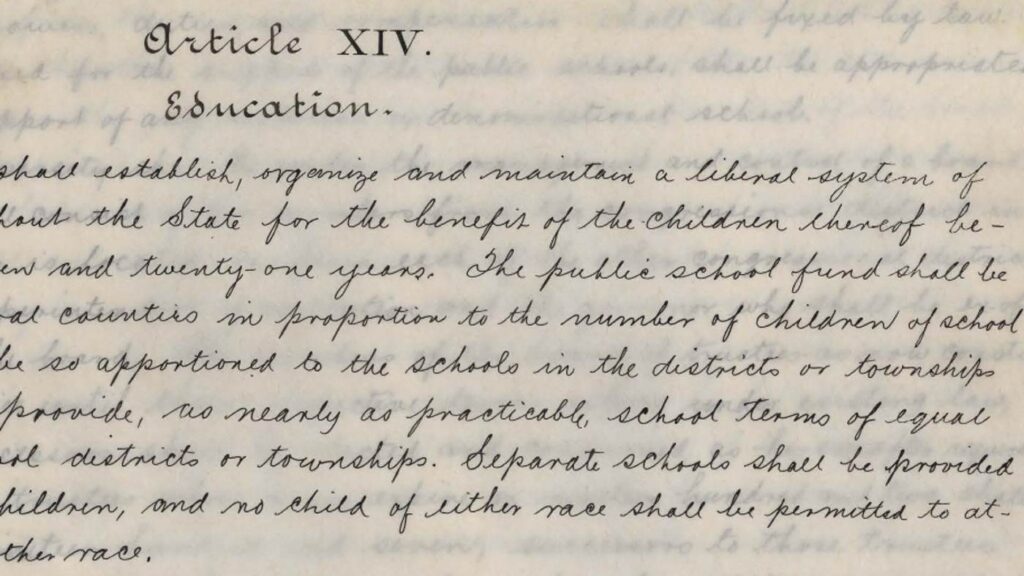 Article XIV.
Education.
shall establish, organize and maintain a liberal system of
hout the State for the benefit of the children thereof be-
en and twenty-one years. The public school fund shall be
ral counties in proportion to the number of children of school
be so apportioned to the schools in the districts or townships
provide, as nearly as practicable, school terms of equal
ool districts or townships. Separate schools shall be provided
hildren, and no child of either race shall be permitted to at-
ther race.